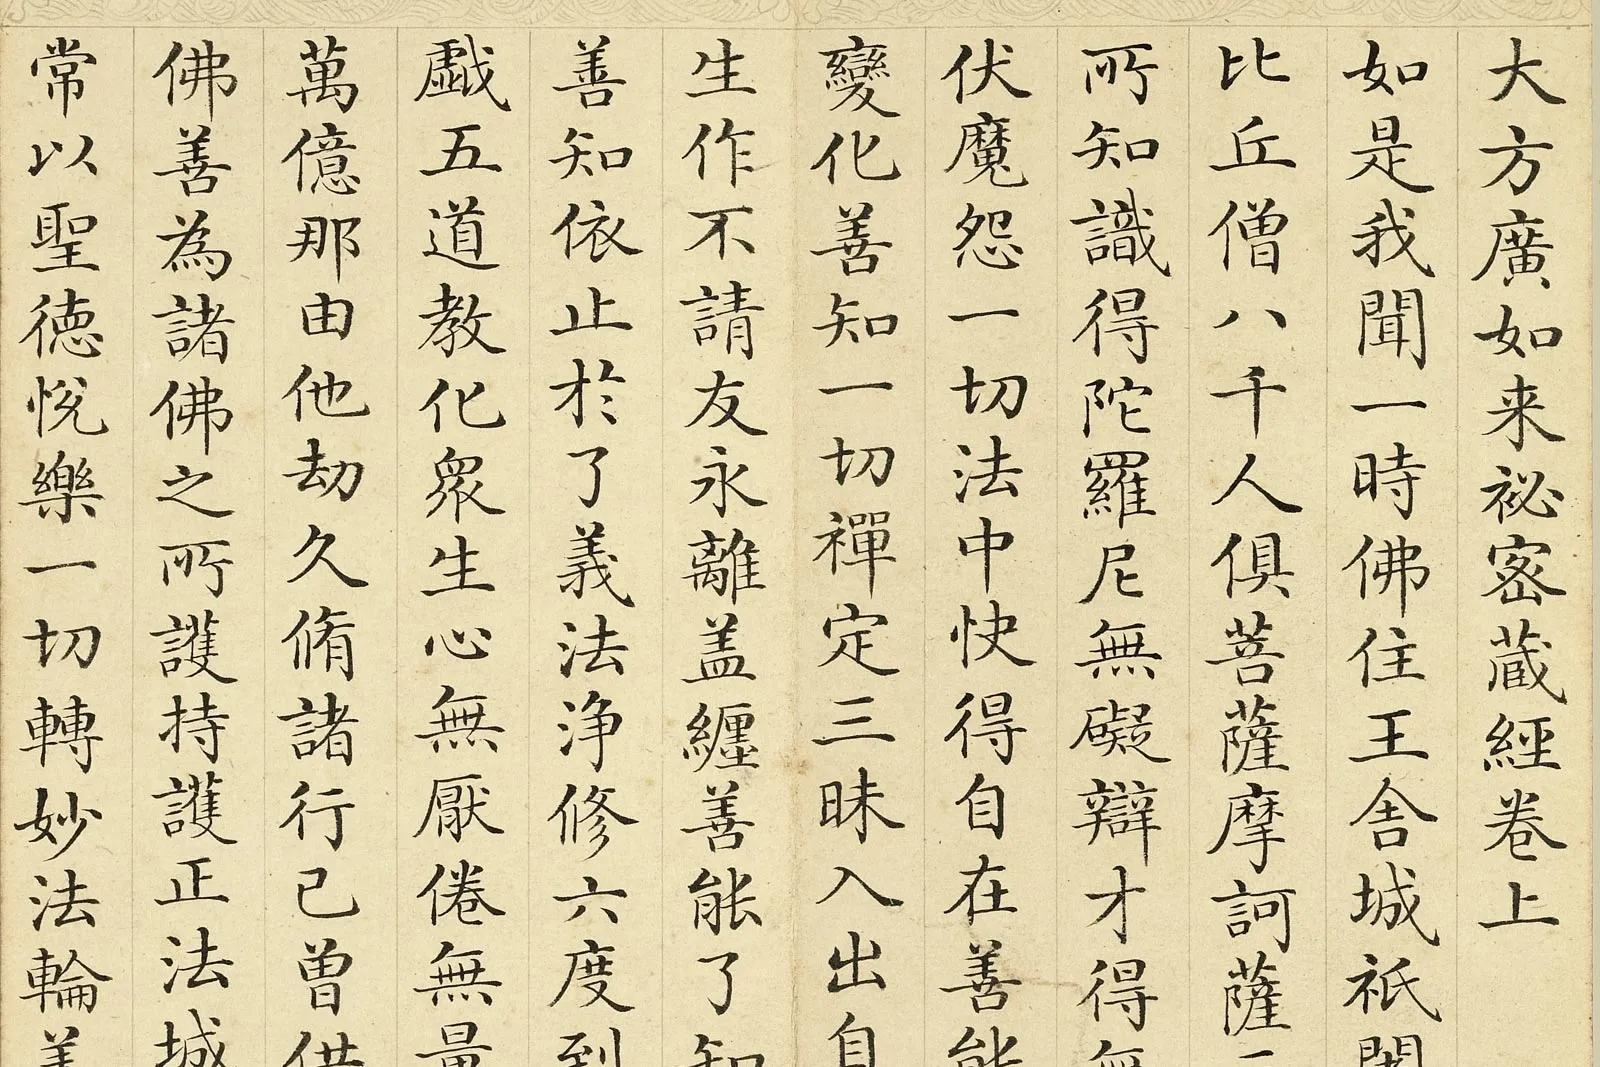 大方廣如来祕密蔵經卷上
如是我聞一時佛住王舎城祇闍
比丘僧八千人俱菩薩摩訶薩二
所知識得陀羅尼無礙辯才得無
伏魔怨一切法中快得自在善能
變化善知一切禪定三昧入出自
生作不請友永離盖纏善能了知
善知依止於了義法浄修六度到
戱五道教化衆生心無厭倦無量
萬億那由他劫久脩諸行已曽供
佛善為諸佛之所護持護正法城
常以聖徳悅樂一切轉妙法輪善